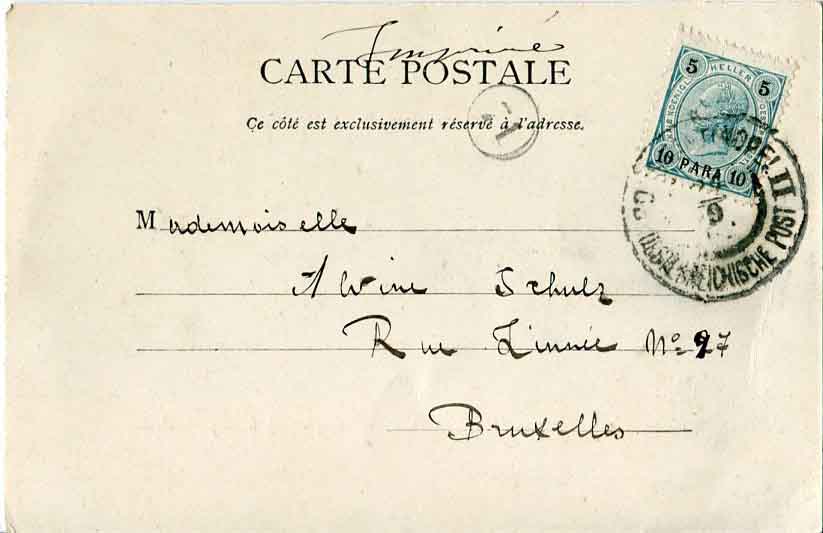 Imprimé
CARTE POSTALE
Ce côté est exclusivement réservé à l'adresse.
5 HELLER 5
10 PARA 10
II
OESTERREICHISCHE POST
Mademoiselle
Alvine Schulz
Rue Linnée Nº 27
Bruxelles